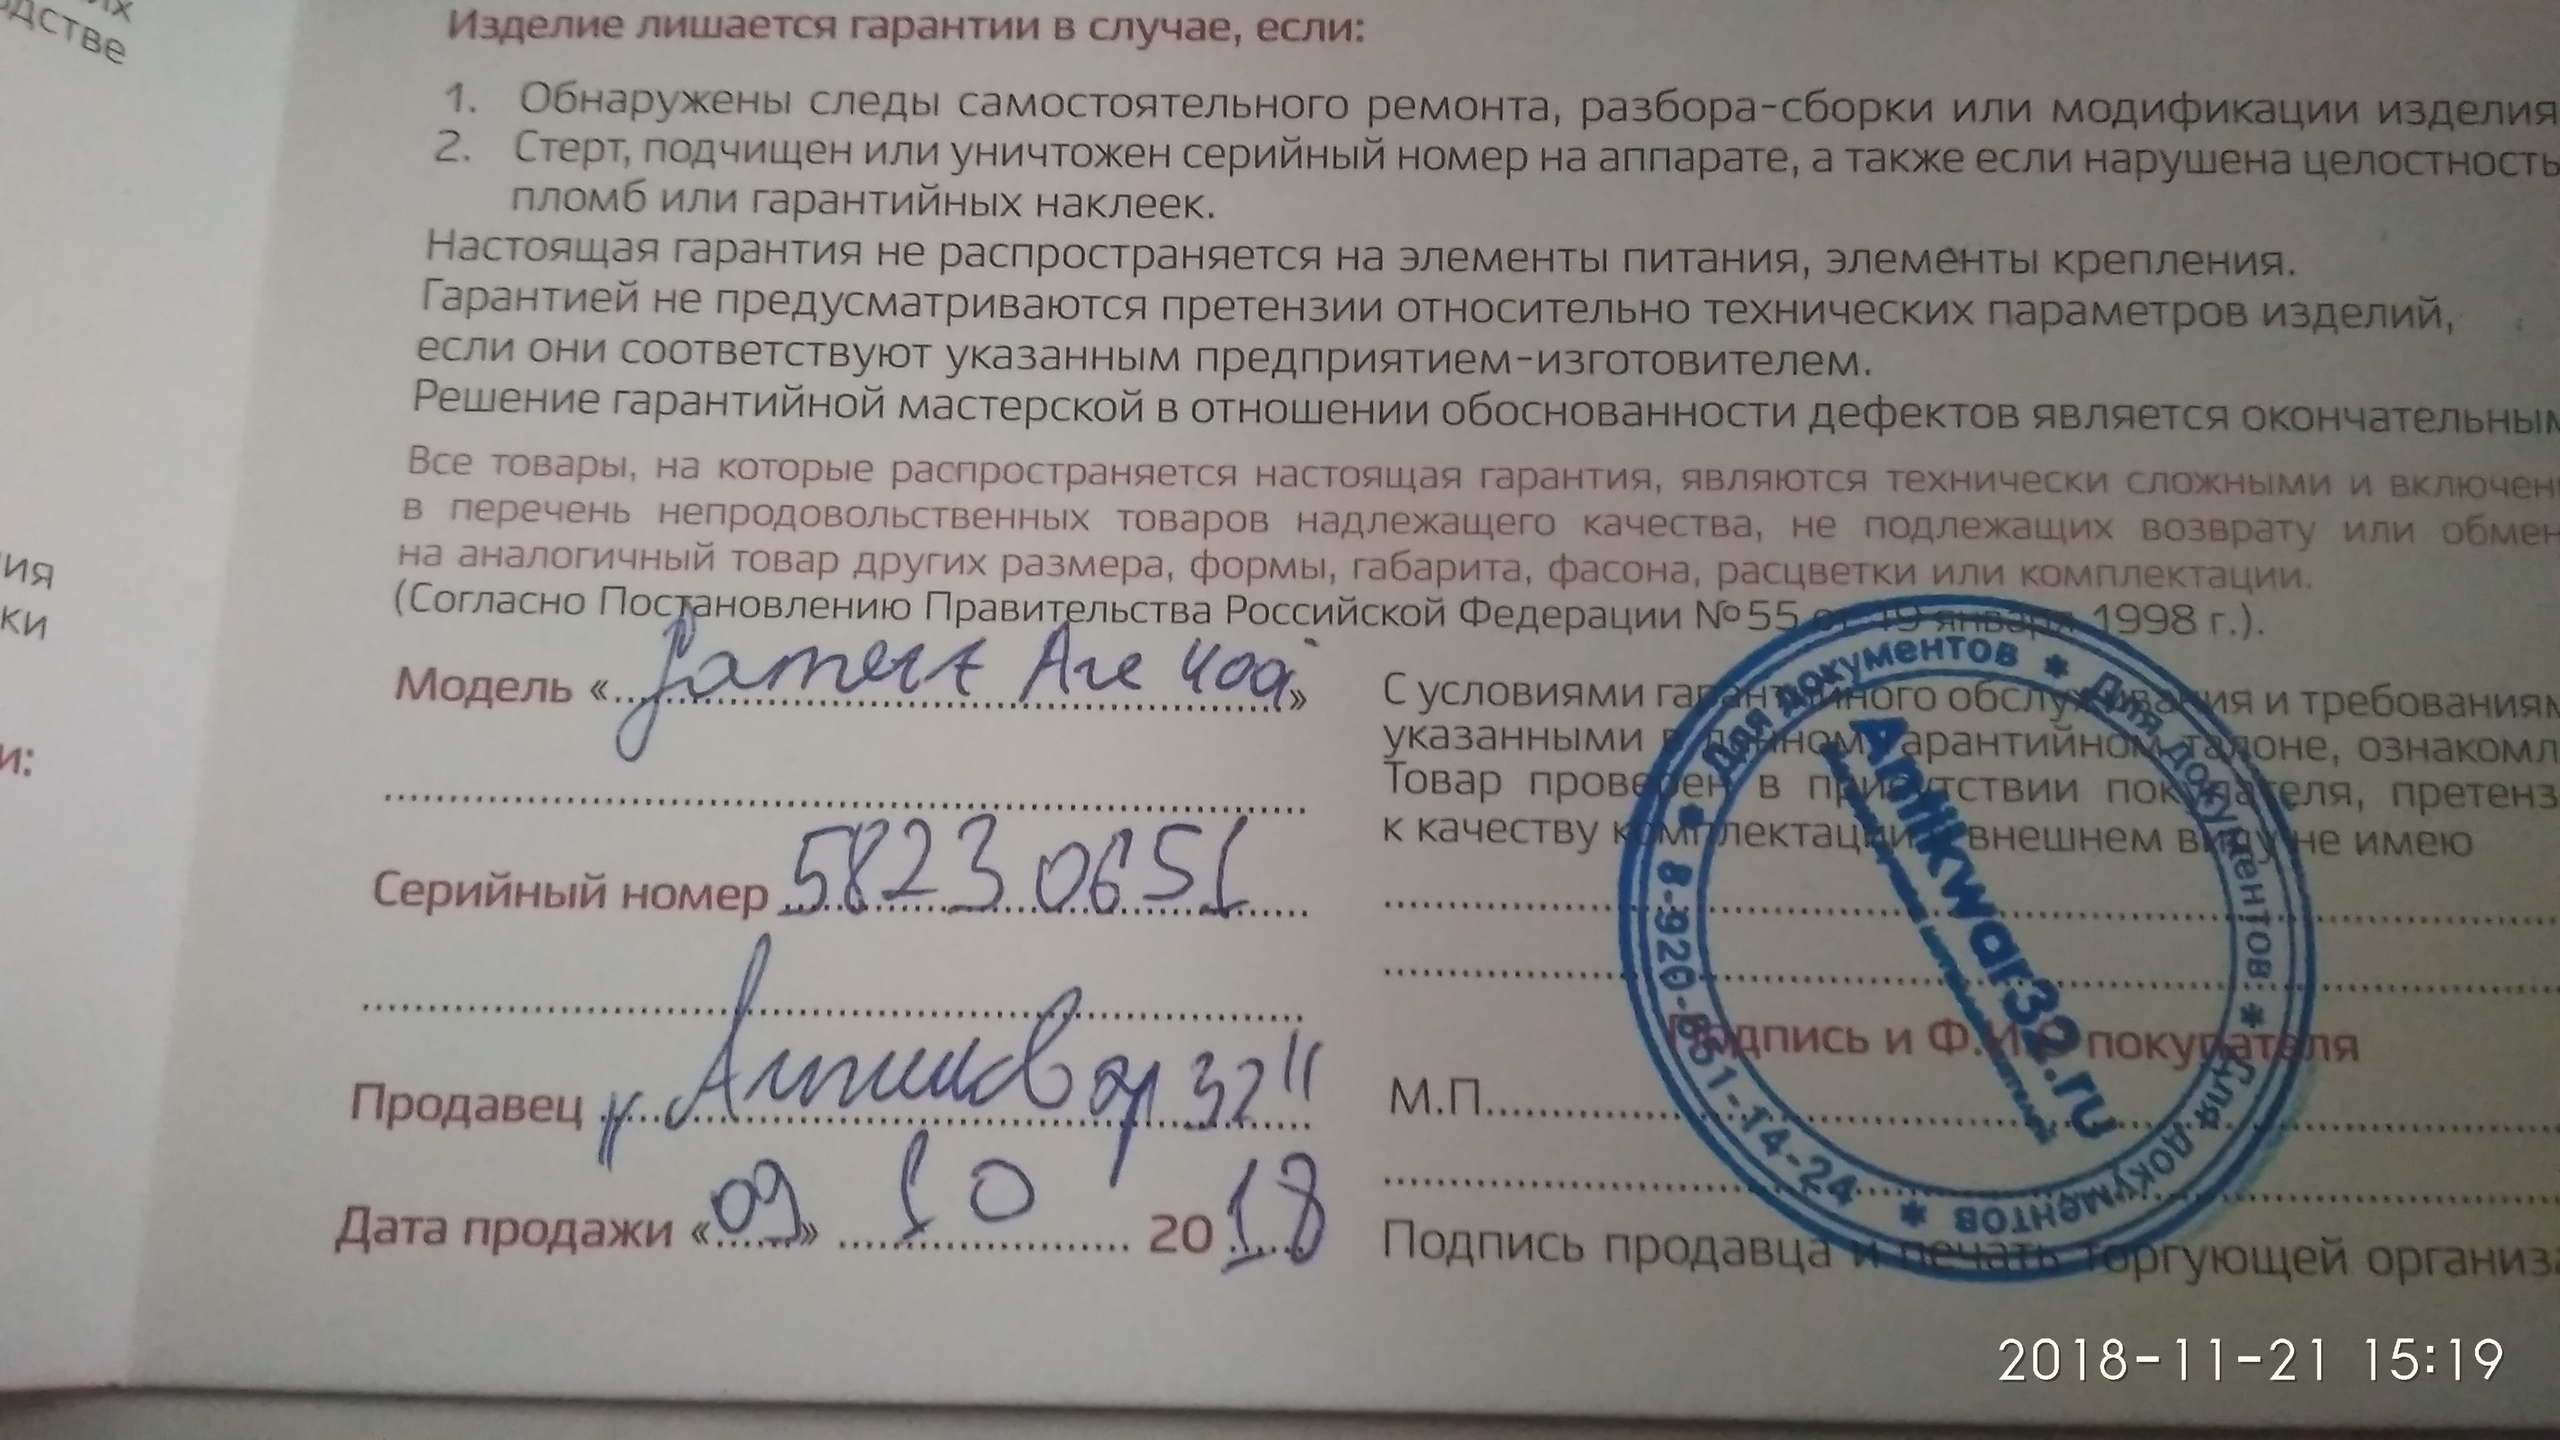 их
дстве
ия
ки
и:
Изделие лишается гарантии в случае, если:
1. Обнаружены следы самостоятельного ремонта, разбора-сборки или модификации изделия
2. Стерт, подчищен или уничтожен серийный номер на аппарате, а также если нарушена целостность
пломб или гарантийных наклеек.
Настоящая гарантия не распространяется на элементы питания, элементы крепления.
Гарантией не предусматриваются претензии относительно технических параметров изделий,
если они соответствуют указанным предприятием-изготовителем.
Решение гарантийной мастерской в отношении обоснованности дефектов является окончательным
Все товары, на которые распространяется настоящая гарантия, являются технически сложными и включен
в перечень непродовольственных товаров надлежащего качества, не подлежащих возврату или обмен
на аналогичный товар других размера, формы, габарита, фасона, расцветки или комплектации.
(Согласно Постановлению Правительства Российской Федерации №55 от 19 января 1998 г.).
Модель « Garrett Ace 400i »
Серийный номер 58230651
Продавец "Антиквар 32"
Дата продажи «09» 10 2018
С условиями гарантийного обслуживания и требованиям
указанными в данном гарантийном талоне, ознакомл
Товар проверен в присутствии покупателя, претенз
к качеству комплектации, внешнем виду не имею
Подпись и Ф.И.О покупателя
М.П.
Подпись продавца и печать торгующей организа
Для документов * Для документов * Для документов * 8-920-851-14-24 *
Antikwar32.ru
2018-11-21 15:19